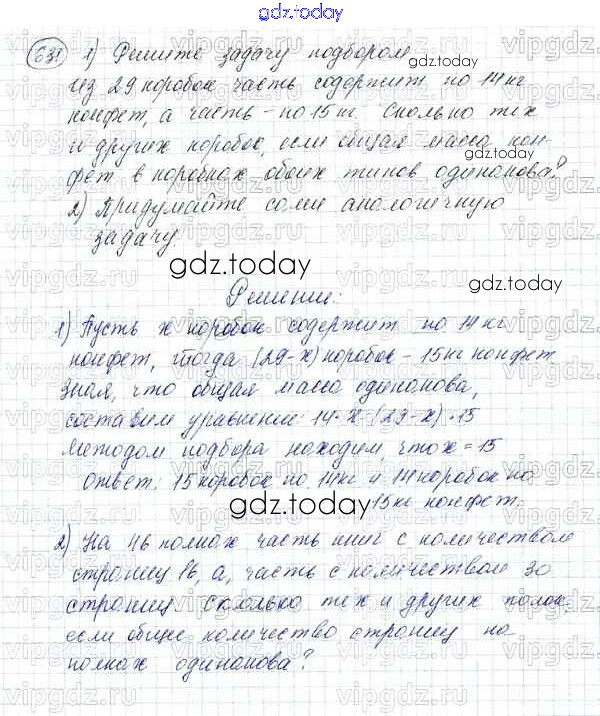 gdz.today
631 1) Решите задачу подбором
из 29 коробок часть содержит по 14 кг
конфет, а часть - по 15 кг. Сколько тех
и других коробок, если общая масса кон-
фет в коробках обоих типов одинакова?
gdz.today
2) Придумайте сами аналогичную
задачу.
gdz.today
Решение:
1) Пусть x коробок содержит по 14 кг
конфет, тогда (29-x) коробок - 15 кг конфет
Зная, что общая масса одинакова,
составим уравнение: 14·x=(29-x)·15
Методом подбора находим, что x=15
Ответ: 15 коробок по 14 кг и 14 коробок по
15 кг конфет.
gdz.today
2) На 46 полках часть книг с количеством
страниц 16, а, часть с количеством 30
страниц сколько тех и других полок,
если общее количество страниц на
полках одинакова?